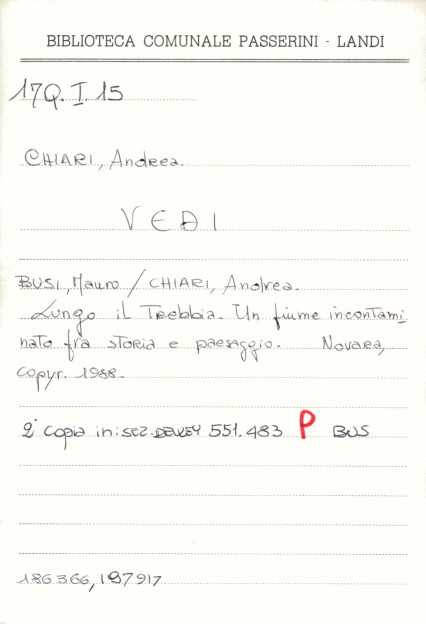 BIBLIOTECA COMUNALE PASSERINI - LANDI
17Q.I.15
CHIARI, Andrea.
VEDI
BUSI, Mauro / CHIARI, Andrea.
Lungo il Trebbia. Un fiume incontami
nato fra storia e paesaggio. Novara,
copyr. 1988.
2ª copia in: sez. DEWEY 551.483 P BUS
186366, 197917